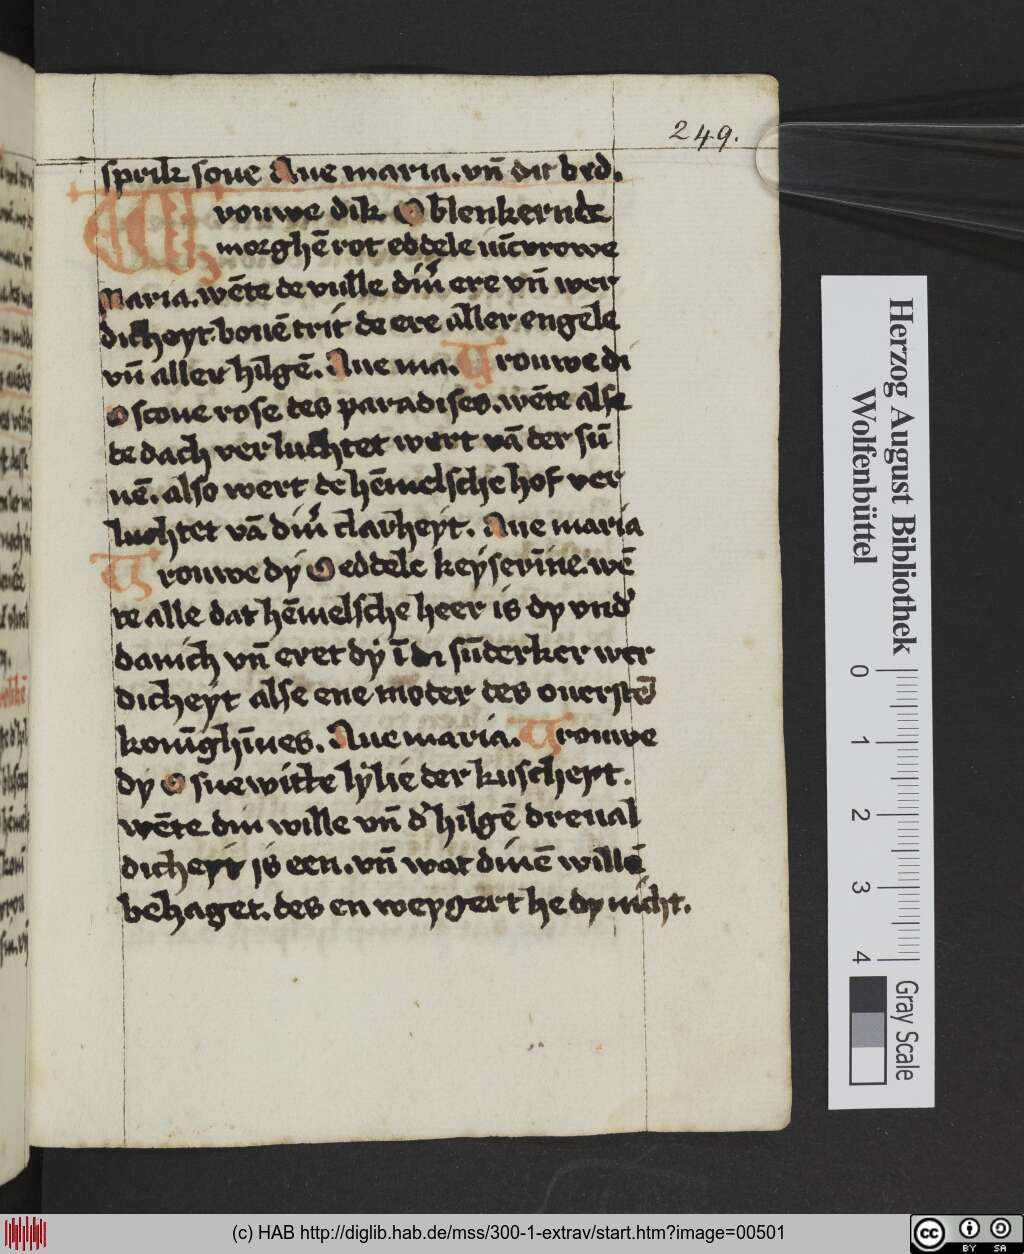 249.
sprik soue Aue maria. vn̄ dit bed.
Vrouwe dik O blenkernde
morghē rot eddele iūcvrowe
Maria. wēte de vulle dinͬ ere vn̄ wer
dicheyt. bouē trit de ere aller engele
vn̄ aller hilgē. Aue ma. Vrouwe di
O scone rose des paradises. wēte alse
de dach verluchtet wert vā der sū
nē. also wert de hēmelsche hof ver
luchtet vā dinͬ clarheyt. Aue maria
Vrouwe dy O eddele keyserīne. wē
te alle dat hēmelsche heer is dy vnd'
danich vn̄ eret dy ī di sūderker wer
dicheyt alse ene moder des ouerstē
konīghīnes. Aue maria. Vrouwe
dy O snewitte lylie der kuscheyt.
wēte din wille vn̄ d' hilgē dreual
dicheyt is een. vn̄ wat dinē willē
behaget. des en weygert he dy nicht.
Herzog August Bibliothek
Wolfenbüttel
0 1 2 3 4
Gray Scale
(c) HAB http://diglib.hab.de/mss/300-1-extrav/start.htm?image=00501
cc BY SA